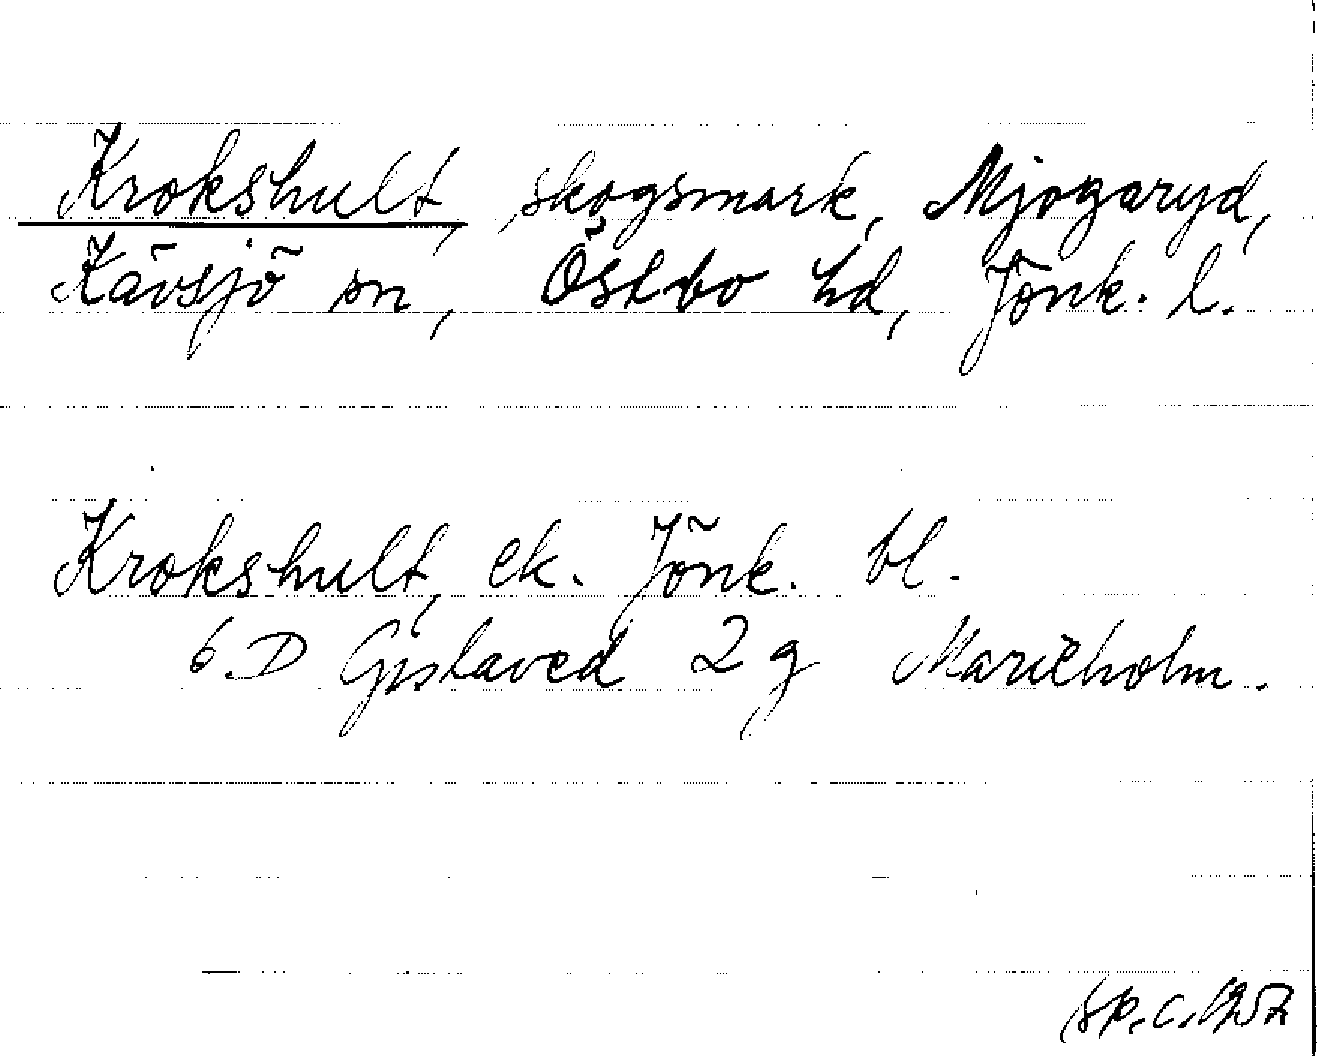 Krokshult, skogsmark, Mjogaryd,
Kävsjö sn, Östbo hd, Jönk. l.
Krokshult, ek. Jönk. bl.
6 D Gislaved 2 g Marieholm.